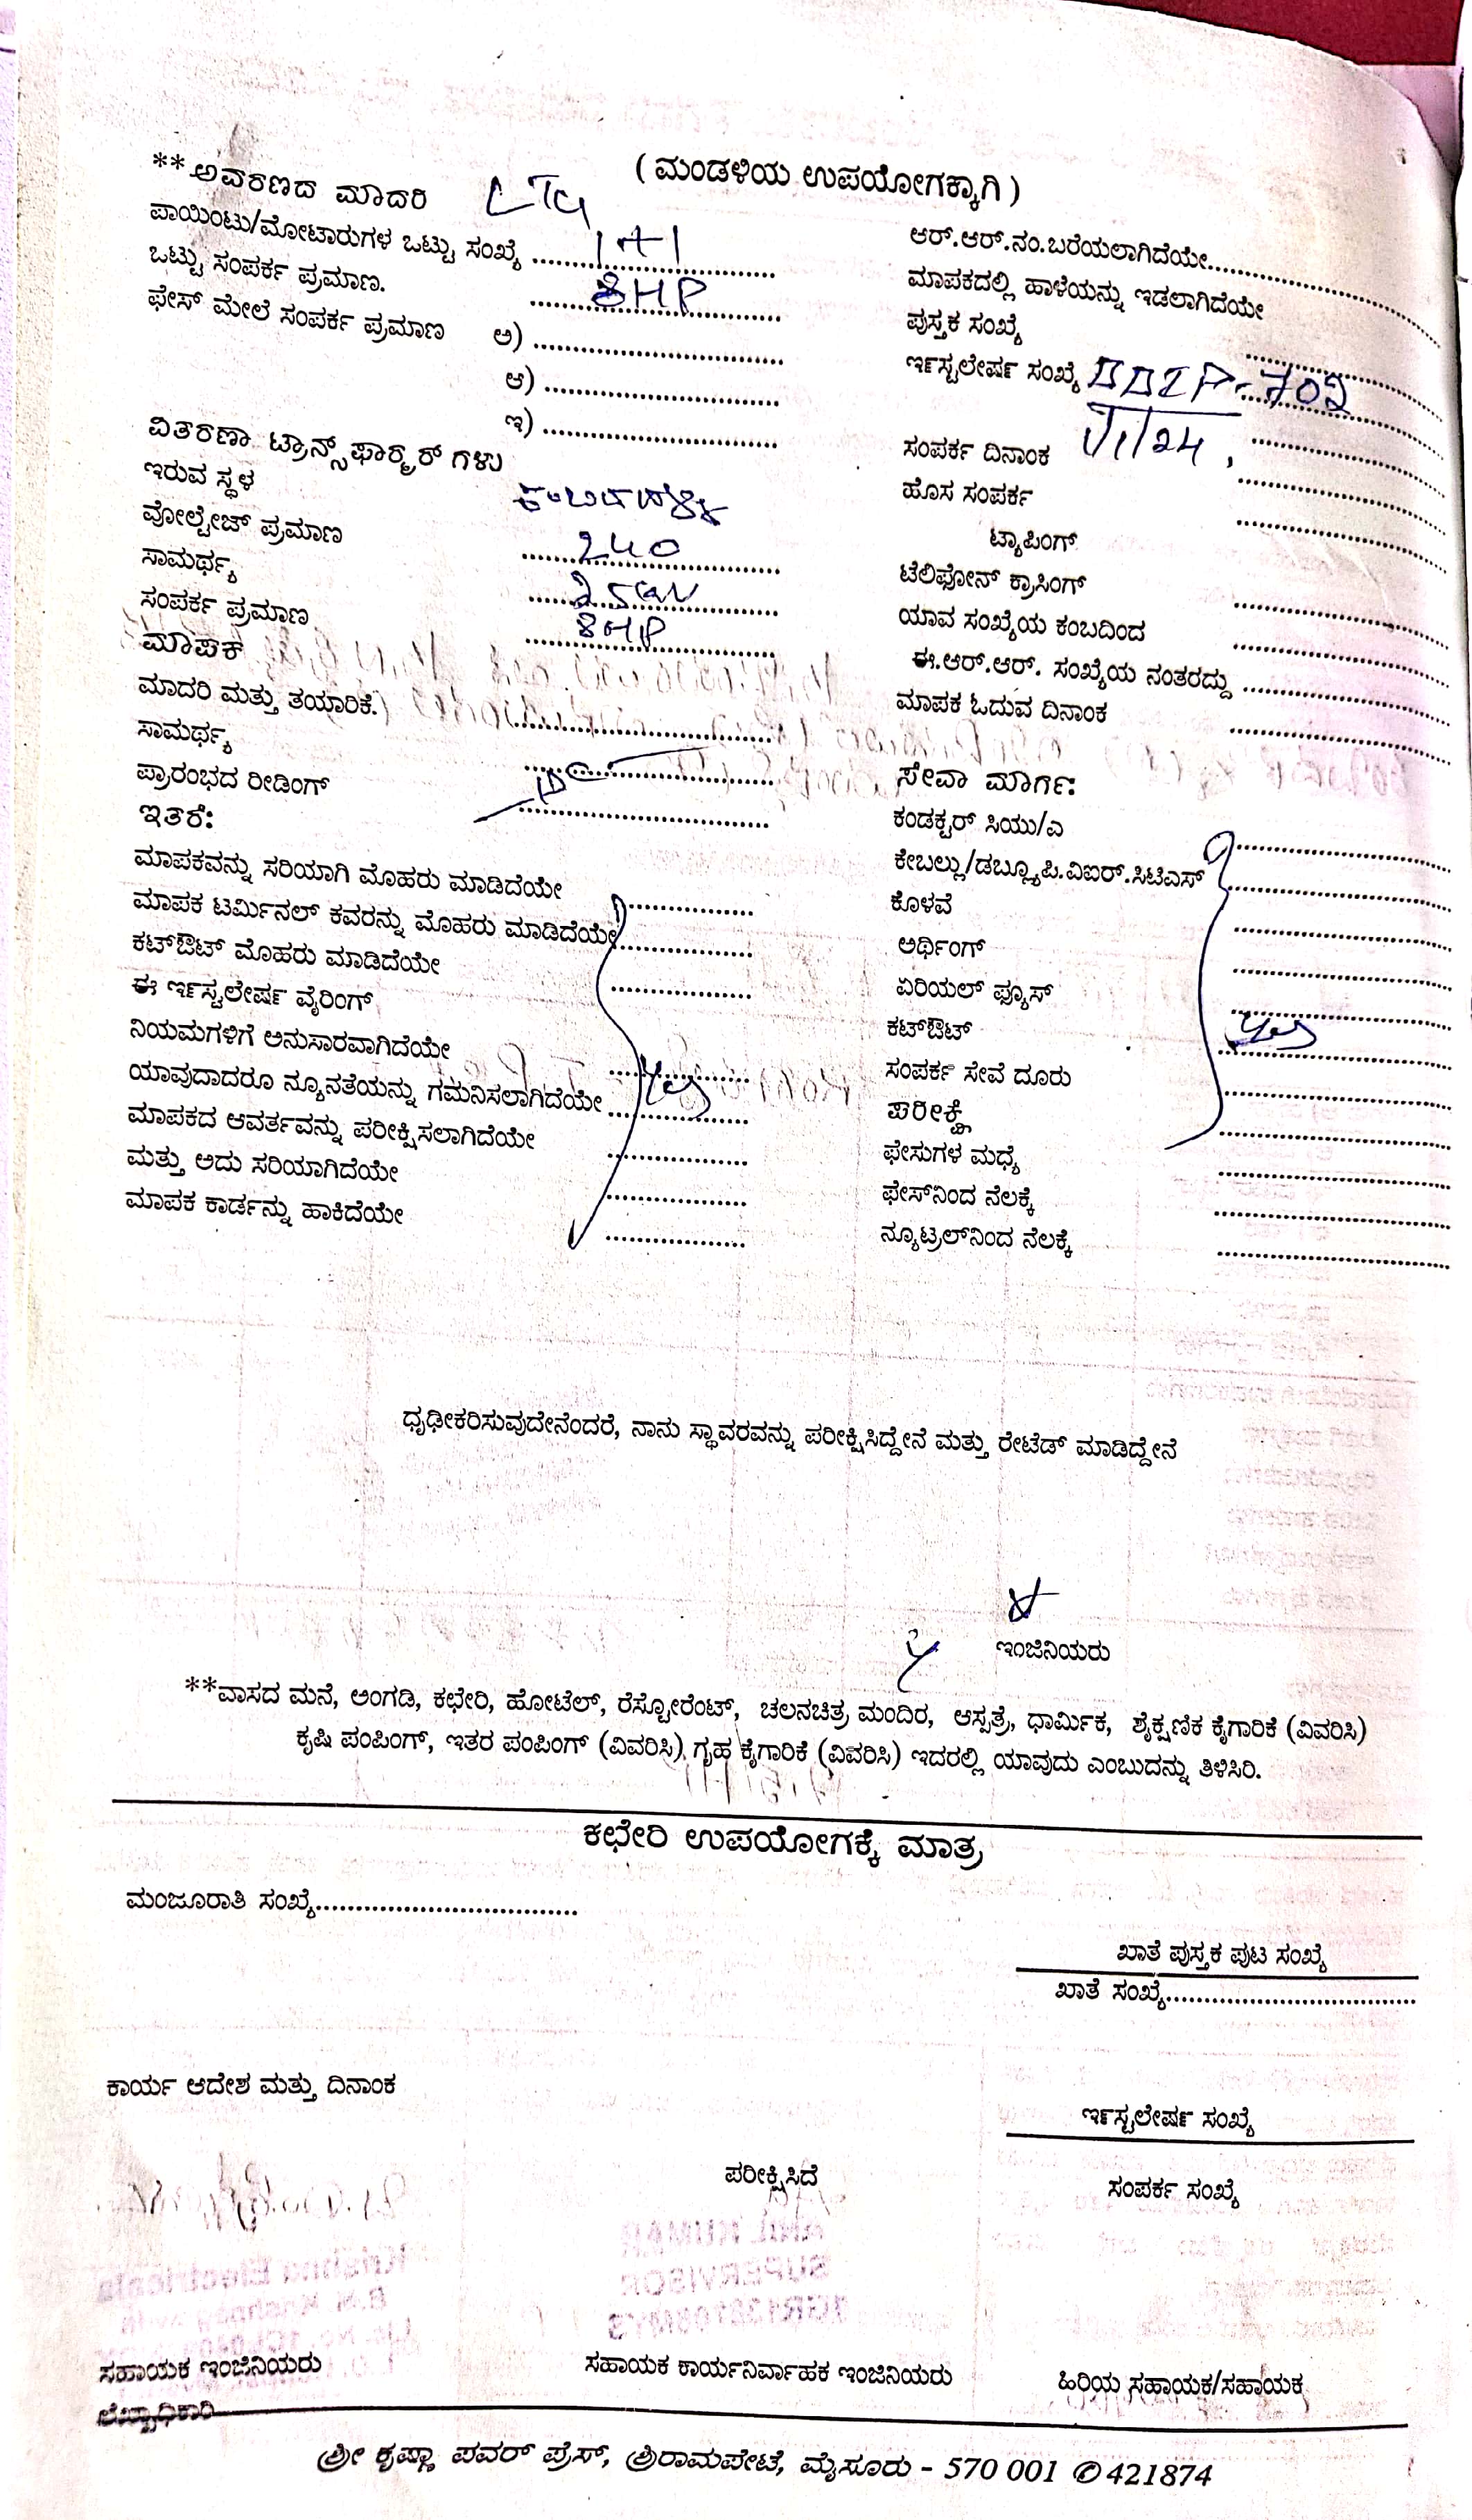 ( ಮಂಡಳಿಯ ಉಪಯೋಗಕ್ಕಾಗಿ )
**ಅವರಣದ ಮಾದರಿ LTG
ಪಾಯಿಂಟು/ಮೋಟಾರುಗಳ ಒಟ್ಟು ಸಂಖ್ಯೆ 1+1
ಒಟ್ಟು ಸಂಪರ್ಕ ಪ್ರಮಾಣ. 8HP
ಫೇಸ್ ಮೇಲೆ ಸಂಪರ್ಕ ಪ್ರಮಾಣ ಅ)
ಆ)
ಇ)
ವಿತರಣಾ ಟ್ರಾನ್ಸ್‌ಫಾರ್‍ಮರ್ ಗಳು
ಇರುವ ಸ್ಥಳ
ವೋಲ್ಟೇಜ್ ಪ್ರಮಾಣ 240
ಸಾಮರ್ಥ್ಯ 25
ಸಂಪರ್ಕ ಪ್ರಮಾಣ 8HP
ಮಾಪಕ
ಮಾದರಿ ಮತ್ತು ತಯಾರಿಕೆ.)
ಸಾಮರ್ಥ್ಯ
ಪ್ರಾರಂಭದ ರೀಡಿಂಗ್
ಇತರೆ:
ಮಾಪಕವನ್ನು ಸರಿಯಾಗಿ ಮೊಹರು ಮಾಡಿದೆಯೇ
ಮಾಪಕ ಟರ್ಮಿನಲ್ ಕವರನ್ನು ಮೊಹರು ಮಾಡಿದೆಯೇ
ಕಟ್‌ಔಟ್ ಮೊಹರು ಮಾಡಿದೆಯೇ
ಈ ಇನ್‌ಸ್ಟಲೇಷನ್ ವೈರಿಂಗ್
ನಿಯಮಗಳಿಗೆ ಅನುಸಾರವಾಗಿದೆಯೇ
ಯಾವುದಾದರೂ ನ್ಯೂನತೆಯನ್ನು ಗಮನಿಸಲಾಗಿದೆಯೇ Yes
ಮಾಪಕದ ಆವರ್ತವನ್ನು ಪರೀಕ್ಷಿಸಲಾಗಿದೆಯೇ
ಮತ್ತು ಅದು ಸರಿಯಾಗಿದೆಯೇ
ಮಾಪಕ ಕಾರ್ಡನ್ನು ಹಾಕಿದೆಯೇ
ಆರ್.ಆರ್.ನಂ.ಬರೆಯಲಾಗಿದೆಯೇ
ಮಾಪಕದಲ್ಲಿ ಹಾಳೆಯನ್ನು ಇಡಲಾಗಿದೆಯೇ
ಪುಸ್ತಕ ಸಂಖ್ಯೆ
ಇನ್‌ಸ್ಟಲೇಷನ್ ಸಂಖ್ಯೆ BBIP-702
ಸಂಪರ್ಕ ದಿನಾಂಕ 1/1/24
ಹೊಸ ಸಂಪರ್ಕ
ಟ್ಯಾಪಿಂಗ್
ಟೆಲಿಫೋನ್ ಕ್ರಾಸಿಂಗ್
ಯಾವ ಸಂಖ್ಯೆಯ ಕಂಬದಿಂದ
ಈ.ಆರ್.ಆರ್. ಸಂಖ್ಯೆಯ ನಂತರದ್ದು
ಮಾಪಕ ಓದುವ ದಿನಾಂಕ
ಸೇವಾ ಮಾರ್ಗ:
ಕಂಡಕ್ಟರ್ ಸಿಯು/ಎ
ಕೇಬಲ್ಲು/ಡಬ್ಲ್ಯೂಪಿ.ವಿಐರ್.ಸಿಟಿಎಸ್
ಕೊಳವೆ
ಅರ್ಥಿಂಗ್
ಏರಿಯಲ್ ಫ್ಯೂಸ್
ಕಟ್‌ಔಟ್ Yes
ಸಂಪರ್ಕ ಸೇವೆ ದೂರು
ಪರೀಕ್ಷೆ
ಫೇಸುಗಳ ಮಧ್ಯೆ
ಫೇಸ್‌ನಿಂದ ನೆಲಕ್ಕೆ
ನ್ಯೂಟ್ರಲ್‌ನಿಂದ ನೆಲಕ್ಕೆ
ಧೃಢೀಕರಿಸುವುದೇನೆಂದರೆ, ನಾನು ಸ್ಥಾವರವನ್ನು ಪರೀಕ್ಷಿಸಿದ್ದೇನೆ ಮತ್ತು ರೇಟೆಡ್ ಮಾಡಿದ್ದೇನೆ
ಇಂಜಿನಿಯರು
**ವಾಸದ ಮನೆ, ಅಂಗಡಿ, ಕಛೇರಿ, ಹೋಟೆಲ್, ರೆಸ್ಟೋರೆಂಟ್, ಚಲನಚಿತ್ರ ಮಂದಿರ, ಆಸ್ಪತ್ರೆ, ಧಾರ್ಮಿಕ, ಶೈಕ್ಷಣಿಕ ಕೈಗಾರಿಕೆ (ವಿವರಿಸಿ)
ಕೃಷಿ ಪಂಪಿಂಗ್, ಇತರ ಪಂಪಿಂಗ್ (ವಿವರಿಸಿ), ಗೃಹ ಕೈಗಾರಿಕೆ (ವಿವರಿಸಿ) ಇದರಲ್ಲಿ ಯಾವುದು ಎಂಬುದನ್ನು ತಿಳಿಸಿರಿ.
ಕಛೇರಿ ಉಪಯೋಗಕ್ಕೆ ಮಾತ್ರ
ಮಂಜೂರಾತಿ ಸಂಖ್ಯೆ
ಖಾತೆ ಪುಸ್ತಕ ಪುಟ ಸಂಖ್ಯೆ
ಖಾತೆ ಸಂಖ್ಯೆ
ಕಾರ್ಯ ಆದೇಶ ಮತ್ತು ದಿನಾಂಕ
ಇನ್‌ಸ್ಟಲೇಷನ್ ಸಂಖ್ಯೆ
ಪರೀಕ್ಷಿಸಿದೆ
ಸಂಪರ್ಕ ಸಂಖ್ಯೆ
ಸಹಾಯಕ ಇಂಜಿನಿಯರು
ಸಹಾಯಕ ಕಾರ್ಯನಿರ್ವಾಹಕ ಇಂಜಿನಿಯರು
ಹಿರಿಯ ಸಹಾಯಕ/ಸಹಾಯಕ
ಲೆಖ್ಖಾಧಿಕಾರಿ
ಶ್ರೀ ಕೃಷ್ಣಾ ಪವರ್ ಪ್ರೆಸ್, ಶ್ರೀರಾಮಪೇಟೆ, ಮೈಸೂರು - 570 001 ✆421874